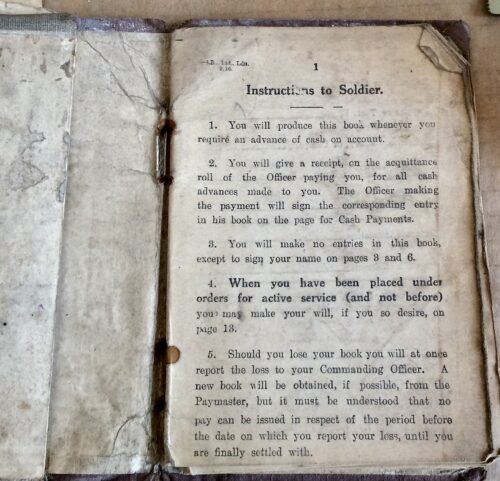 Ltd., Ldn.
1
Instructions to Soldier.
1. You will produce this book whenever you
require an advance of cash on account.
2. You will give a receipt, on the acquittance
roll of the Officer paying you, for all cash
advances made to you. The Officer making
the payment will sign the corresponding entry
in his book on the page for Cash Payments.
3. You will make no entries in this book,
except to sign your name on pages 3 and 6.
4. When you have been placed under
orders for active service (and not before)
you may make your will, if you so desire, on
page 13.
5. Should you lose your book you will at once
report the loss to your Commanding Officer. A
new book will be obtained, if possible, from the
Paymaster, but it must be understood that no
pay can be issued in respect of the period before
the date on which you report your loss, until you
are finally settled with.